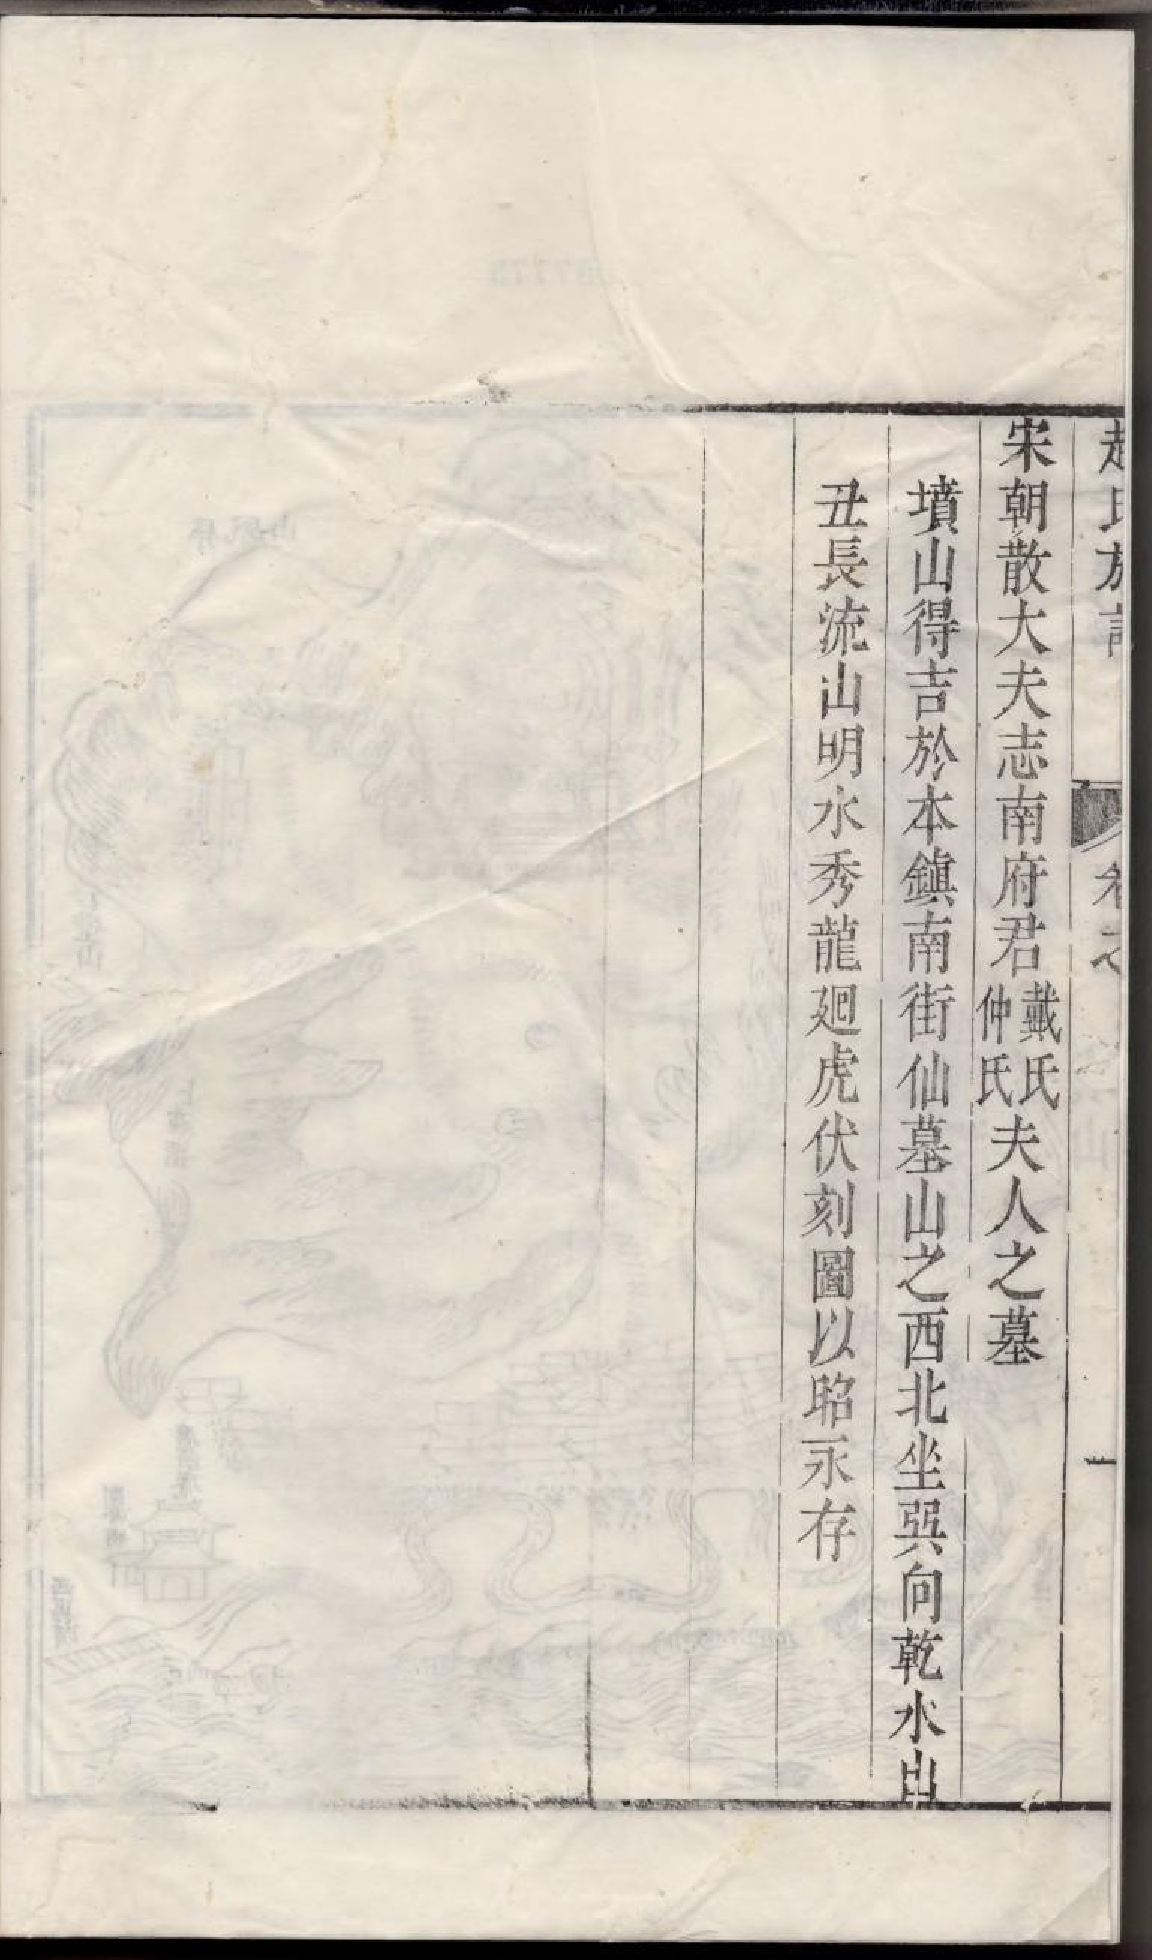 趙氏族譜 卷之 一
宋朝散大夫志南府君戴氏仲氏夫人之墓
墳山得吉於本鎭南街仙墓山之西北坐巽向乾水出
丑長流山明水秀龍廻虎伏刻圖以昭永存